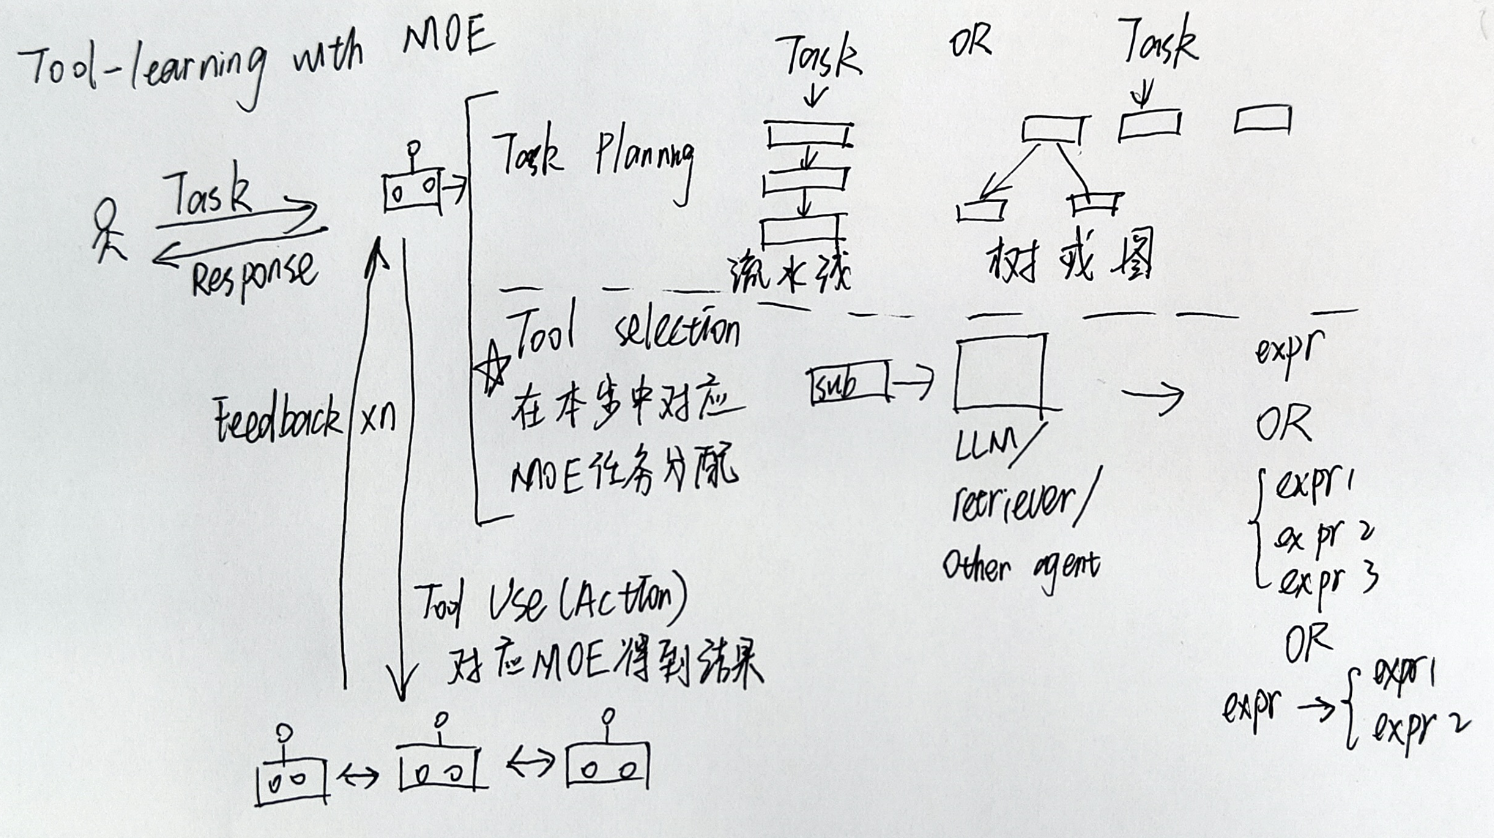 Tool-learning with MOE
Task
Response
Task Planning
Task
OR
Task
流水线
树或图
Tool selection
在本步中对应
MOE任务分配
sub
LLM/
retriever/
Other agent
expr
OR
expr1
expr2
expr3
OR
expr
expr1
expr2
Feedback
xn
Tool Use (Action)
对应MOE得到结果